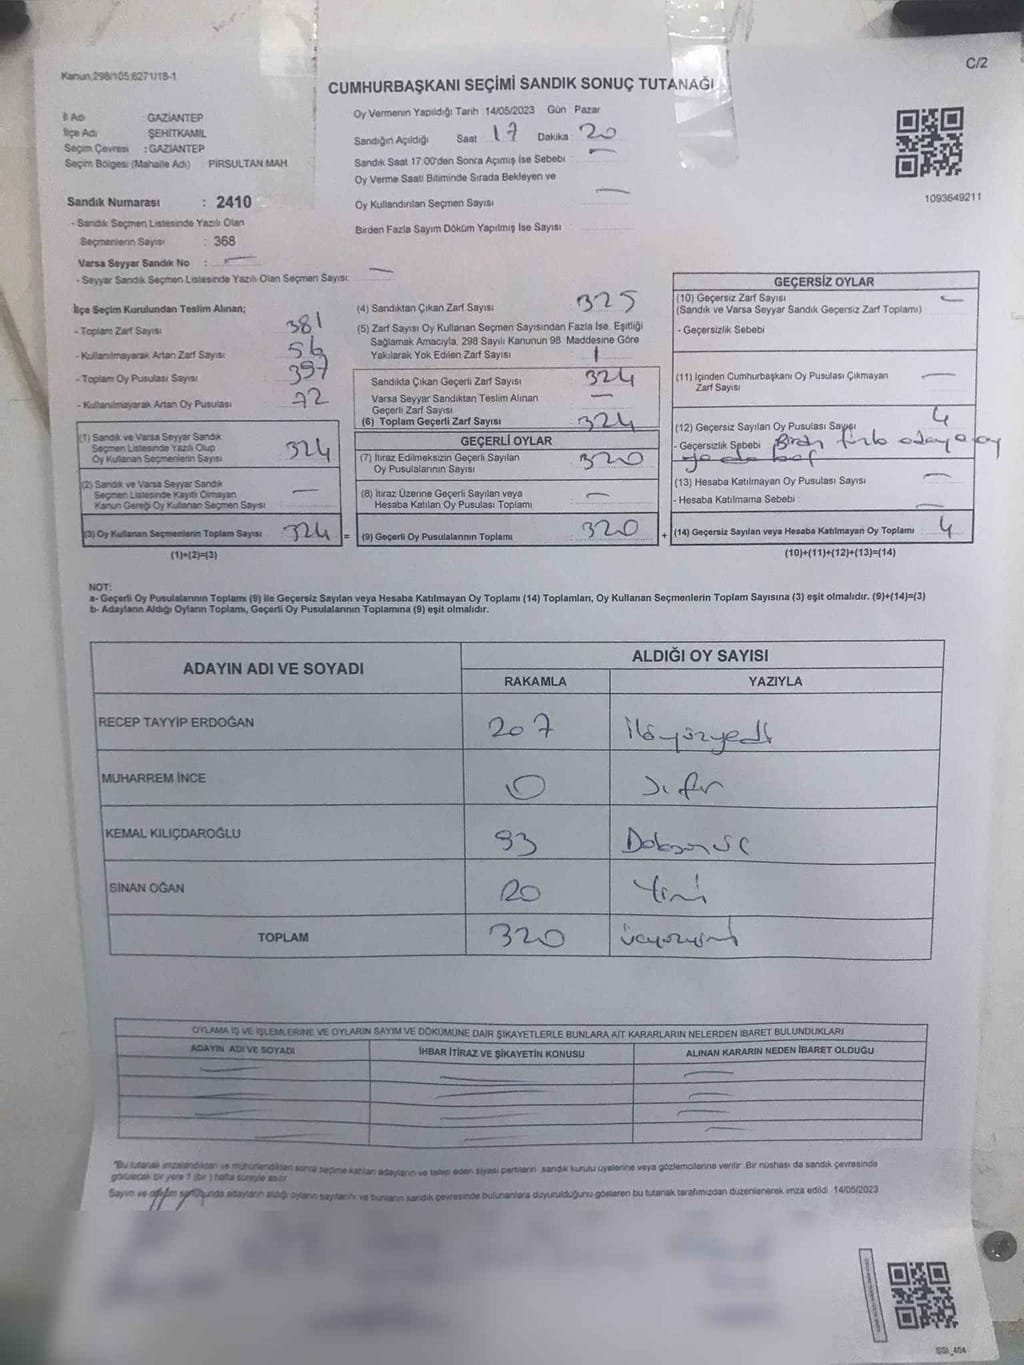 Kanun.298/105;6271/18-1
C/2
CUMHURBAŞKANI SEÇİMİ SANDIK SONUÇ TUTANAĞI
İl Adı : GAZİANTEP
İlçe Adı : ŞEHİTKAMİL
Seçim Çevresi : GAZİANTEP
Seçim Bölgesi (Mahalle Adı) PİRSULTAN MAH
Oy Vermenin Yapıldığı Tarih 14/05/2023 Gün Pazar
Sandığın Açıldığı Saat 17 Dakika 20
Sandık Saat 17:00'den Sonra Açımış İse Sebebi
Oy Verme Saati Bitiminde Sırada Bekleyen ve
Oy Kullandırılan Seçmen Sayısı
Birden Fazla Sayım Döküm Yapılmış İse Sayısı
1093649211
Sandık Numarası : 2410
- Sandık Seçmen Listesinde Yazılı Olan
Seçmenlerin Sayısı : 368
Varsa Seyyar Sandık No :
- Seyyar Sandık Seçmen Listesinde Yazılı Olan Seçmen Sayısı:
İlçe Seçim Kurulundan Teslim Alınan;
- Toplam Zarf Sayısı 381
- Kullanılmayarak Artan Zarf Sayısı 56
- Toplam Oy Pusulası Sayısı 397
- Kullanılmayarak Artan Oy Pusulası 72
(1) Sandık ve Varsa Seyyar Sandık
Seçmen Listesinde Yazılı Olup
Oy Kullanan Seçmenlerin Sayısı 324
(2) Sandık ve Varsa Seyyar Sandık
Seçmen Listesinde Kayıtlı Olmayan
Kanun Gereği Oy Kullanan Seçmen Sayısı
(3) Oy Kullanan Seçmenlerin Toplam Sayısı 324 =
(1)+(2)=(3)
(4) Sandıktan Çıkan Zarf Sayısı 325
(5) Zarf Sayısı Oy Kullanan Seçmen Sayısından Fazla İse, Eşitliği
Sağlamak Amacıyla, 298 Sayılı Kanunun 98 Maddesine Göre
Yakılarak Yok Edilen Zarf Sayısı 1
Sandıkta Çıkan Geçerli Zarf Sayısı 324
Varsa Seyyar Sandıktan Teslim Alınan
Geçerli Zarf Sayısı
(6) Toplam Geçerli Zarf Sayısı 324
GEÇERLİ OYLAR
(7) İtiraz Edilmeksizin Geçerli Sayılan
Oy Pusulalarının Sayısı 320
(8) İtiraz Üzerine Geçerli Sayılan veya
Hesaba Katılan Oy Pusulası Toplamı
(9) Geçerli Oy Pusulalarının Toplamı 320 +
GEÇERSİZ OYLAR
(10) Geçersiz Zarf Sayısı
(Sandık ve Varsa Seyyar Sandık Geçersiz Zarf Toplamı)
- Geçersizlik Sebebi
(11) İçinden Cumhurbaşkanı Oy Pusulası Çıkmayan
Zarf Sayısı
(12) Geçersiz Sayılan Oy Pusulası Sayısı 4
- Geçersizlik Sebebi Birden fazla adaya oy
(13) Hesaba Katılmayan Oy Pusulası Sayısı
- Hesaba Katılmama Sebebi
(14) Geçersiz Sayılan veya Hesaba Katılmayan Oy Toplamı 4
(10)+(11)+(12)+(13)=(14)
NOT:
a- Geçerli Oy Pusulalarının Toplamı (9) ile Geçersiz Sayılan veya Hesaba Katılmayan Oy Toplamı (14) Toplamları, Oy Kullanan Seçmenlerin Toplam Sayısına (3) eşit olmalıdır. (9)+(14)=(3)
b- Adayların Aldığı Oyların Toplamı, Geçerli Oy Pusulalarının Toplamına (9) eşit olmalıdır.
ADAYIN ADI VE SOYADI
ALDIĞI OY SAYISI
RAKAMLA YAZIYLA
RECEP TAYYİP ERDOĞAN 207 ikiyüzyedi
MUHARREM İNCE 0 Sıfır
KEMAL KILIÇDAROĞLU 93 Doksanüç
SİNAN OĞAN 20 Yirmi
TOPLAM 320 üçyüzyirmi
OYLAMA İŞ VE İŞLEMLERİNE VE OYLARIN SAYIM VE DÖKÜMÜNE DAİR ŞİKAYETLERLE BUNLARA AİT KARARLARIN NELERDEN İBARET BULUNDUKLARI
ADAYIN ADI VE SOYADI İHBAR İTİRAZ VE ŞİKAYETİN KONUSU ALINAN KARARIN NEDEN İBARET OLDUĞU
*Bu tutanak imzalandıktan ve mühürlendikten sonra seçime katılan adayların ve talep eden siyasi partilerin sandık kurulu üyelerine veya gözlemcilerine verilir. Bir nüshası da sandık çevresinde
görülecek bir yere 1 (bir) hafta süreyle asılır.
Sayım ve döküm sonucunda adayların aldığı oyların sayılarını ve bunların sandık çevresinde bulunanlara duyurulduğunu gösteren bu tutanak tarafımızdan düzenlenerek imza edildi. 14/05/2023
SSI_404